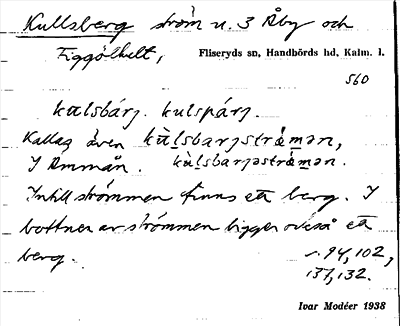 Kullsberg ström n. 3 Åby och
Figgölhult,
Fliseryds sn, Handbörds hd, Kalm. l.
560
kulsbárj. kulspárj.
Kallas även kùlsbarjstrǿmən,
I Ammån. kùlsbarjəstrǿmən.
Intill strömmen finns ett berg. I
bottnen av strömmen ligger också ett
berg.
s. 94, 102,
131, 132.
Ivar Modéer 1938